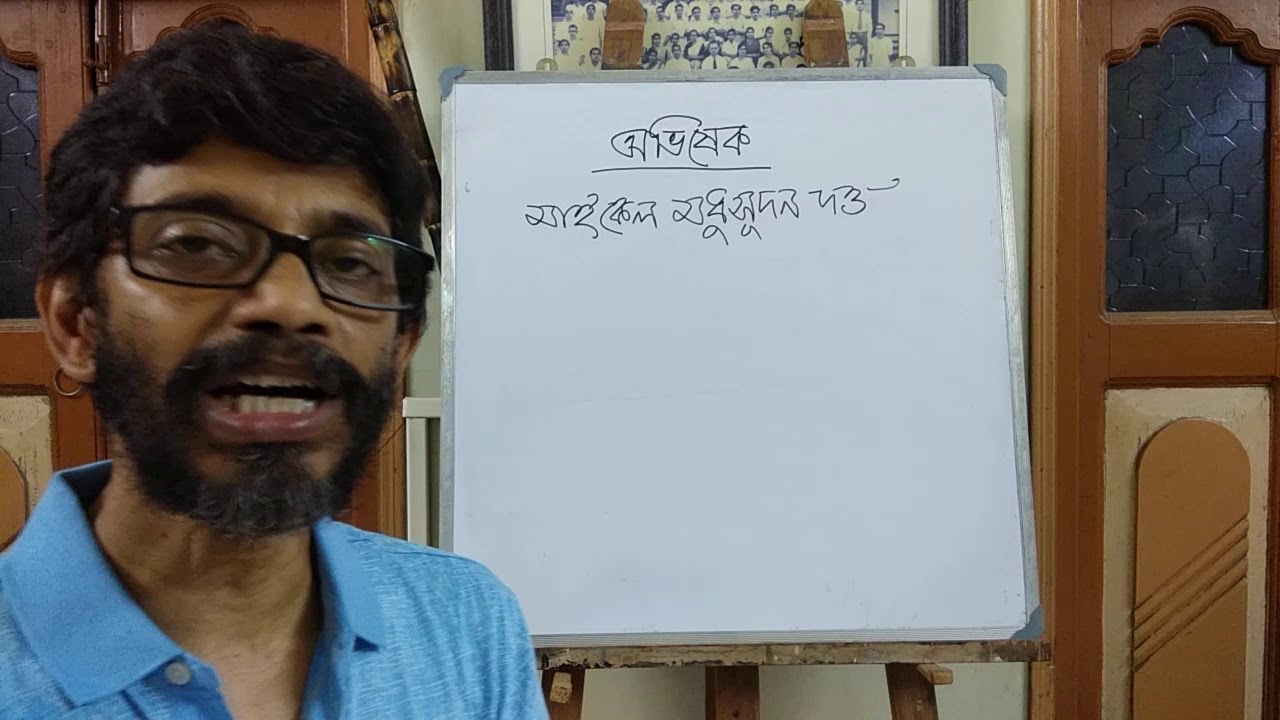 অভিষেক
মাইকেল মধুসূদন দত্ত